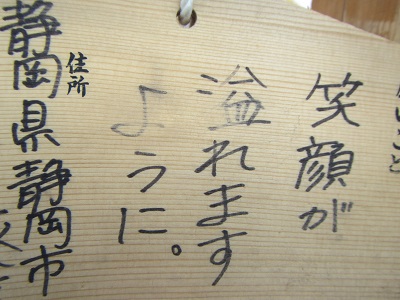 笑顔が
溢れます
ように。
住所
静岡県静岡市